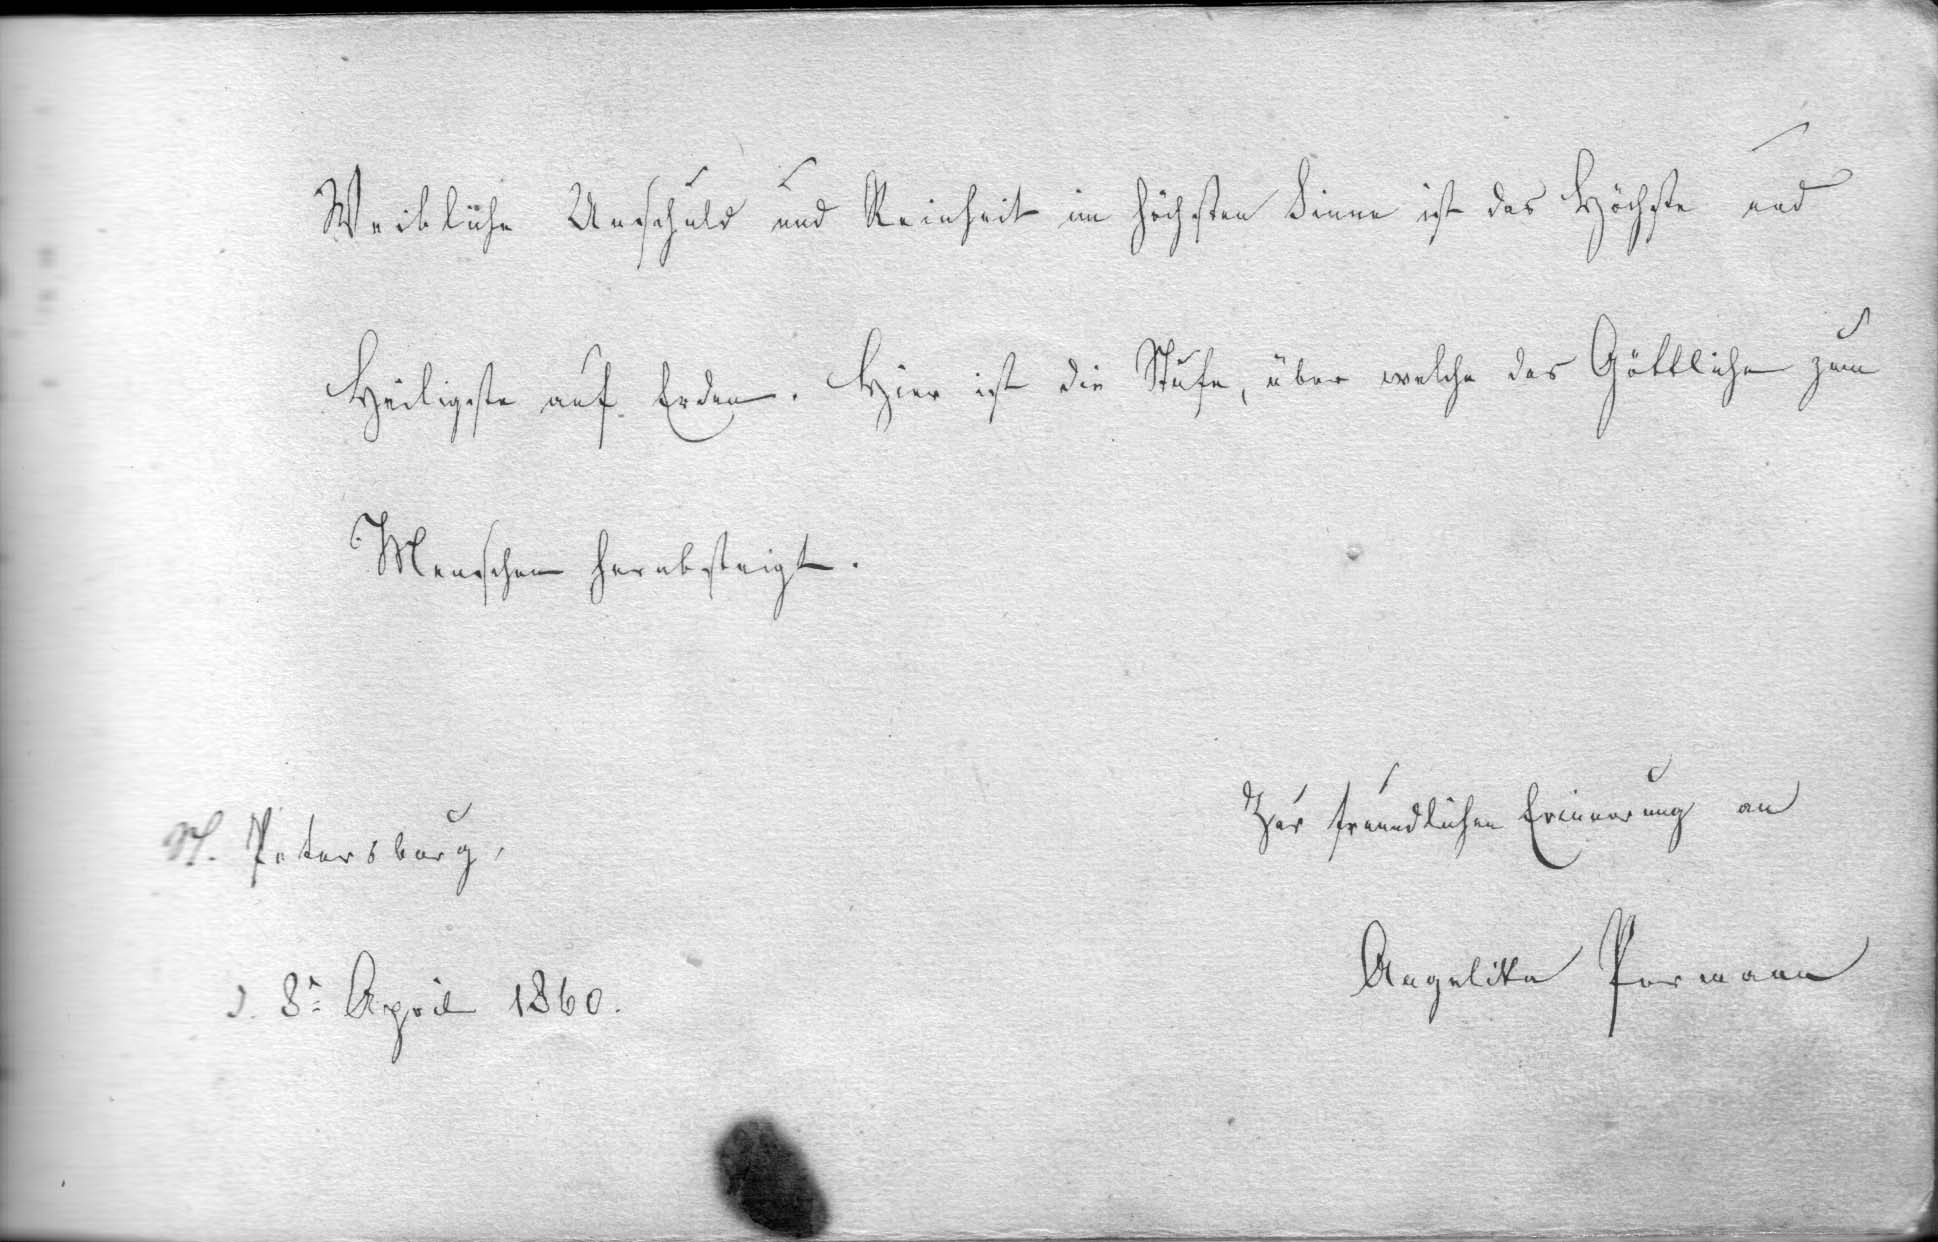 Weibliche Unschuld und Reinheit im höchsten Sinne ist das Höchste und
Heiligste auf Erden. Hier ist die Stufe, über welche das Göttliche zum
Menschen herabsteigt.
Zur freundlichen Erinnerung an
St. Petersburg,
Angelika Pormann
d. 8t. April 1860.